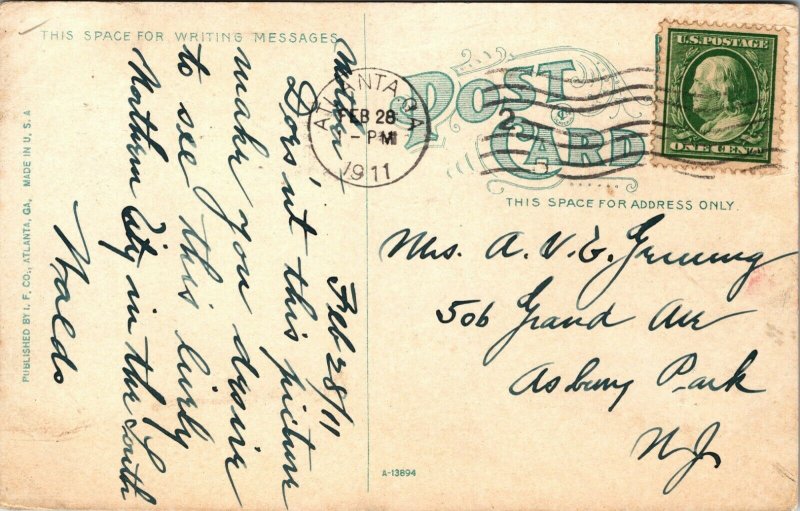 THIS SPACE FOR WRITING MESSAGES
POST
CARD
U.S. POSTAGE
ONE CENT
ATLANTA, GA.
FEB 28
- PM
1911
THIS SPACE FOR ADDRESS ONLY.
Feb 28/11
Mother
Does'nt this picture
make you desire
to see this lively
Northern City in the South
Waldo
Mrs. A. V. G.
506 Grand Ave
Asbury Park
N.J.
PUBLISHED BY I. F. CO., ATLANTA, GA. MADE IN U. S. A
A-13894